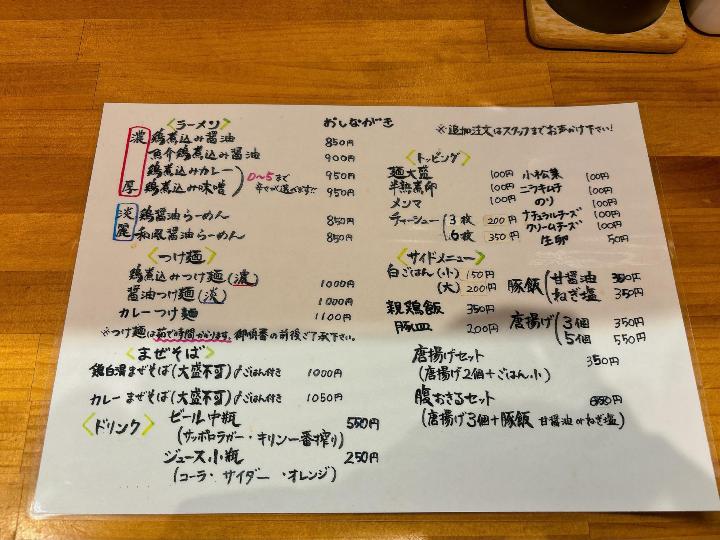 おしながき
※追加注文はスタッフまでお声がけ下さい!
<ラーメン>
濃厚
鶏煮込み醤油 850円
魚介鶏煮込み醤油 900円
鶏煮込みカレー 950円
鶏煮込み味噌 950円
0〜5まで
辛さが選べます!!
淡麗
鶏醤油らーめん 850円
和風醤油らーめん 850円
<つけ麺>
鶏煮込みつけ麺(濃) 1000円
醤油つけ麺(淡) 1000円
カレーつけ麺 1100円
※つけ麺は茹で時間がかります。御順番の前後ご了承下さい。
<まぜそば>
鶏白湯まぜそば(大盛不可)ごはん付き 1000円
カレーまぜそば(大盛不可)ごはん付き 1050円
<ドリンク>
ビール中瓶 550円
(サッポロラガー・キリン一番搾り)
ジュース小瓶 250円
(コーラ・サイダー・オレンジ)
<トッピング>
麺大盛 100円
半熟煮卵 100円
メンマ 100円
チャーシュー(3枚 200円
6枚 350円
小松菜 100円
ニラキムチ 100円
のり 100円
ナチュラルチーズ 100円
クリームチーズ 100円
生卵 50円
<サイドメニュー>
白ごはん(小) 150円
(大) 200円
親鶏飯 350円
豚皿 200円
豚飯(甘醤油 350円
ねぎ塩 350円
唐揚げ(3個 350円
5個 550円
唐揚げセット 350円
(唐揚げ2個+ごはん小)
腹おきるセット
(唐揚げ3個+豚飯 甘醤油orねぎ塩)